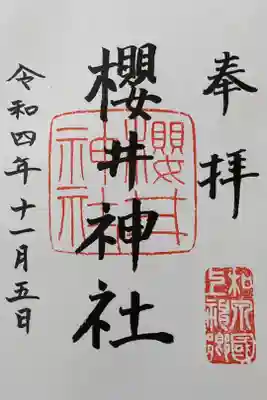 奉拝
櫻井神社
櫻井神社
令和四年十一月五日